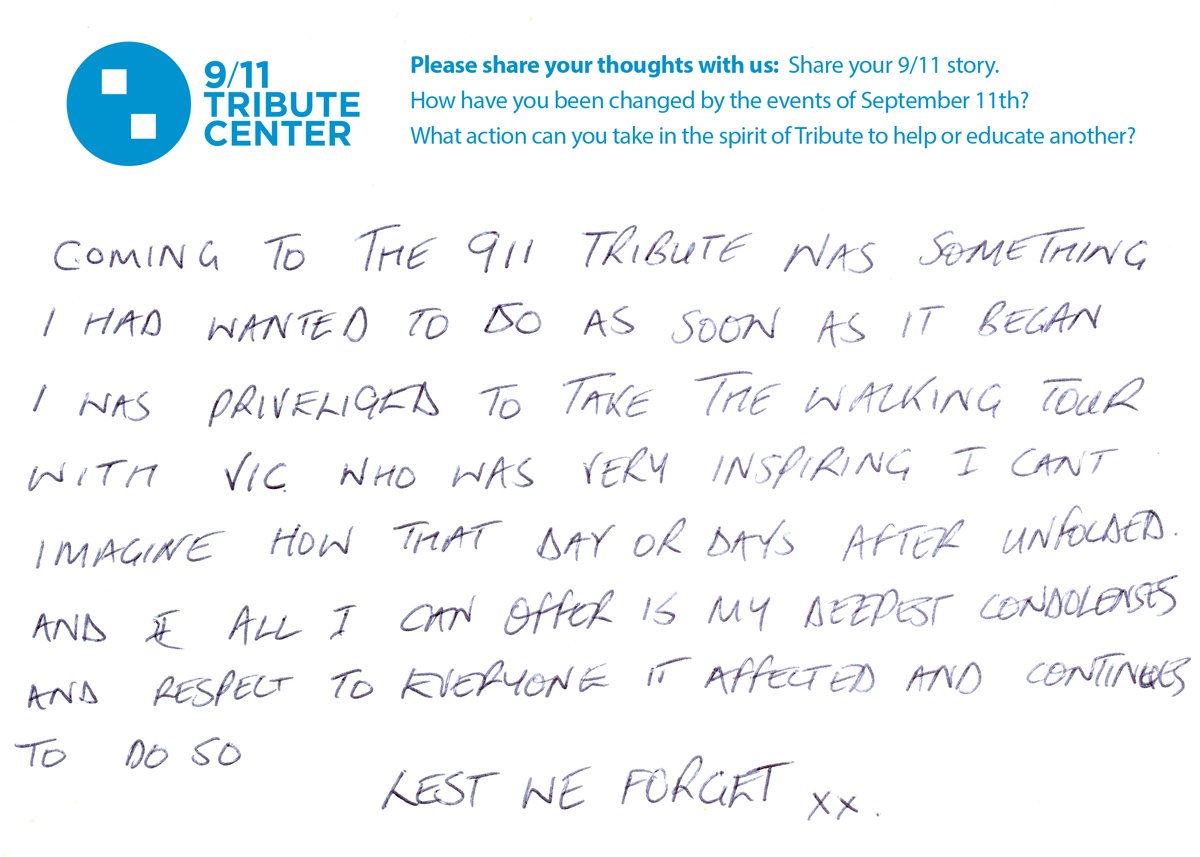 9/11
TRIBUTE
CENTER
Please share your thoughts with us: Share your 9/11 story.
How have you been changed by the events of September 11th?
What action can you take in the spirit of Tribute to help or educate another?
COMING TO THE 911 TRIBUTE WAS SOMETHING
I HAD WANTED TO DO AS SOON AS IT BEGAN
I WAS PRIVELIGED TO TAKE THE WALKING TOUR
WITH VIC. WHO WAS VERY INSPIRING I CANT
IMAGINE HOW THAT DAY OR DAYS AFTER UNFOLDED.
AND ALL I CAN OFFER IS MY DEEPEST CONDOLENSES
AND RESPECT TO EVERYONE IT AFFECTED AND CONTINUES
TO DO SO
LEST WE FORGET xx.